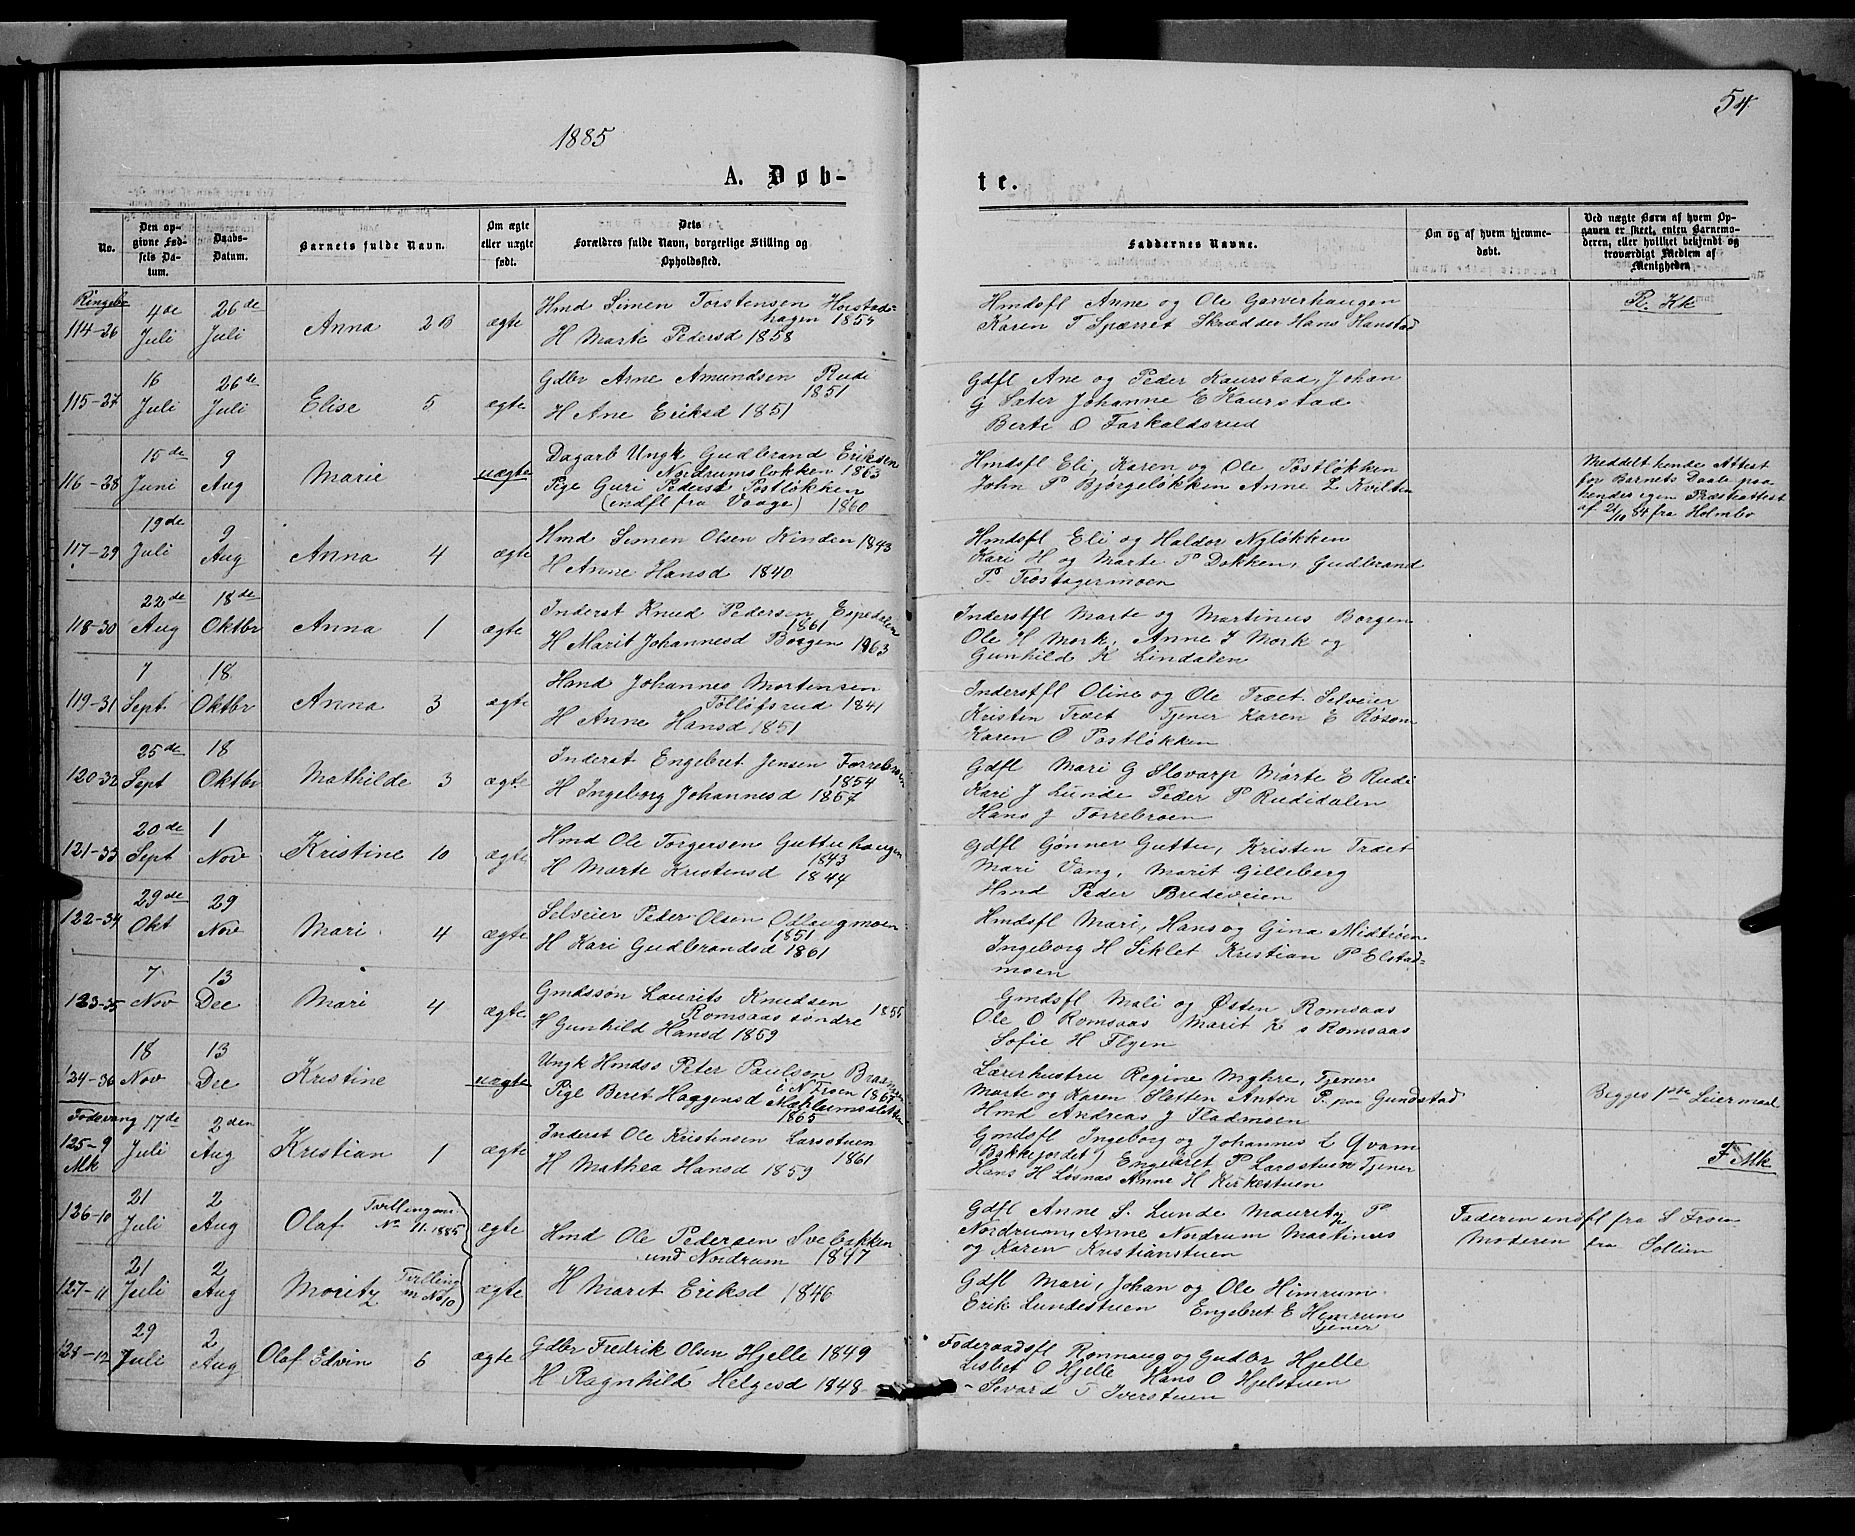 54
1885
A. Døb-
te.
No.
Den op-
givne Fød-
sels Da-
tum.
Daabs-
Datum.
Barnets fulde Navn.
Om ægte
eller uægte
født.
Dets
Forældres fulde Navn, borgerlige Stilling og
Opholdssted.
Faddernes Navne.
Om og af hvem hjemme-
døbt.
Ved uægte Børn af hvem Op-
gaven er skeet, enten Barnemo-
deren, eller hvilket bekjendt og
troværdigt Medlem af
Menigheden
Ringebo
114-26
4de
Juli
26de
Juli
Anna 2B
ægte
Hmd Simen Torstensen Horstads-
hagen 1857
H Marte Pedersd 1858
Hmdsfl Anne og Ole Garverhaugen
Karen T Spærret Skrædder Hans Hanstad
R. Kk
115-27
16
Juli
26de
Juli
Elise 5
ægte
Gdbr Arne Amundsen Rudi
1851
H Ane Eriksd 1851
Gdfl Ane og Peder Kaurstad, Johan
G Sæter Johanne E Kaurstad
Berte O Forkalsrud
116-28
15de
Juni
9
Aug
Marie
uægte
Dagarb Ungk Gudbrand Eriksen
Nordrumsløkken 1863
Pige Guri Pedersd Postløkken
(indfl fra Vaage) 1860
Hmdsfl Eli, Karen og Ole Postløkken
John P Bjørgeløkken Anne L Kvilten
Meddelt hende Attest
for Barnets Daab paa
hendes egen Præsteattest
af 21/10 84 fra Holmbo
117-29
19de
Juli
9
Aug
Anna 4
ægte
Hmd Simen Olsen Kinden 1843
H Anne Hansd 1840
Hmdsfl Eli og Haldor Nyløkken
Kari H og Marte P Dokken, Gudbrand
P. Trostagermoen
118-30
22de
Aug
18de
Oktbr
Anna 1
ægte
Inderst Knud Pedersen Espedalen
1861
H Marit Johannesd Borgen 1863
Inderstfl Marte og Martinus Borgen
Ole H Mork, Anne J Mork og
Gunhild K Lindalen
119-31
7
Sept
18
Oktbr
Anna 3
ægte
Hmd Johannes Mortensen
Tolløfsrud 1841
H Anne Hansd 1851
Inderstfl Oline og Ole Træet Selveier
Kristen Træet Tjener Karen E Røsom
Karen O Postløkken
120-32
25de
Sept
18
Oktbr
Mathilde 3
ægte
Inderst Engebret Jensen Forrebroen
1854
H Ingeborg Johannesd 1857
Gdfl Mari G Stovarp Marte E Rudi
Kari J Lunde Peder P Rudidalen
Hans J Forrebroen
121-33
20de
Sept
1
Nov
Kristine 10
ægte
Hmd Ole Torgersen Guttuhaugen
1843
H Marte Kristensd 1844
Gdfl Gønner Guttu, Kristen Træet
Mari Vang, Marit Gilleberg
Hmd Peder Bredeveien
122-34
29de
Okt
29
Nov
Mari 4
ægte
Selveier Peder Olsen Odlaugmoen
1851
H Kari Gudbrandsd 1861
Hmdsfl Mari, Hans og Gina Midtrøen
Ingeborg H Siklet Kristian P Elstad-
moen
123-35
7
Nov
13
Dec
Mari 4
ægte
Gmdssøn Laurits Knudsen
Romsaas søndre 1855
H Gunhild Hansd 1859
Gmdsfl Mali og Østen Romsaas
Ole O Romsaas Marit K s Romsaas
Sofie H Flyen
124-36
18
Nov
13
Dec
Kristine
uægte
Ungk Hmdss Peter Paulsen
i N Froen 1867
Pige Beret Haagensd
1865
Lærerhustru Regine Myhre, Tjener
Marte og Karen Sletten Anton P. paa Gundstad
Hmd Andreas J Fladmoen
Begges 1ste Leiermaal
Fodvang
125-9
Mk
17de
Juli
2den
Aug
Kristian 1
ægte
Inderst Ole Kristensen Larsstuen
1861
H Mathea Hansd 1859
Gmdsfl Ingeborg og Johannes L Qvam
Bakkejordet, Engebret P Larsstuen Tjener
Hans H Losnas Anne H Kirkestuen
F Mk
126-10
21
Juli
2
Aug
Olaf
Tvilling m.
No 11. 1885
ægte
Hmd Ole Pedersen Svebakken
und Nordrum 1847
Gdfl Anne S. Lunde Mauritz P
Nordrum, Anne Nordrum Martinus
og Karen Kristianstuen
Faderen indfl fra S Froen
Moderen fra Sollien
127-11
21
Juli
2
Aug
Moritz
Tvilling
m No 10
ægte
H Marit Eriksd 1846
Gdfl Mari, Johan og Ole Himrum
Erik Lundestuen Engebret E Himrum
Tjener
128-12
29
Juli
2
Aug
Olaf Edvin 6
ægte
Gdbr Fredrik Olsen Hjelle 1849
H Ragnhild Helgesd 1848
Føderaadsfl Rønnaug og Gudbr Hjelle
Lisbet O Hjelle Hans O Hjelstuen
- Sivard T Iverstuen